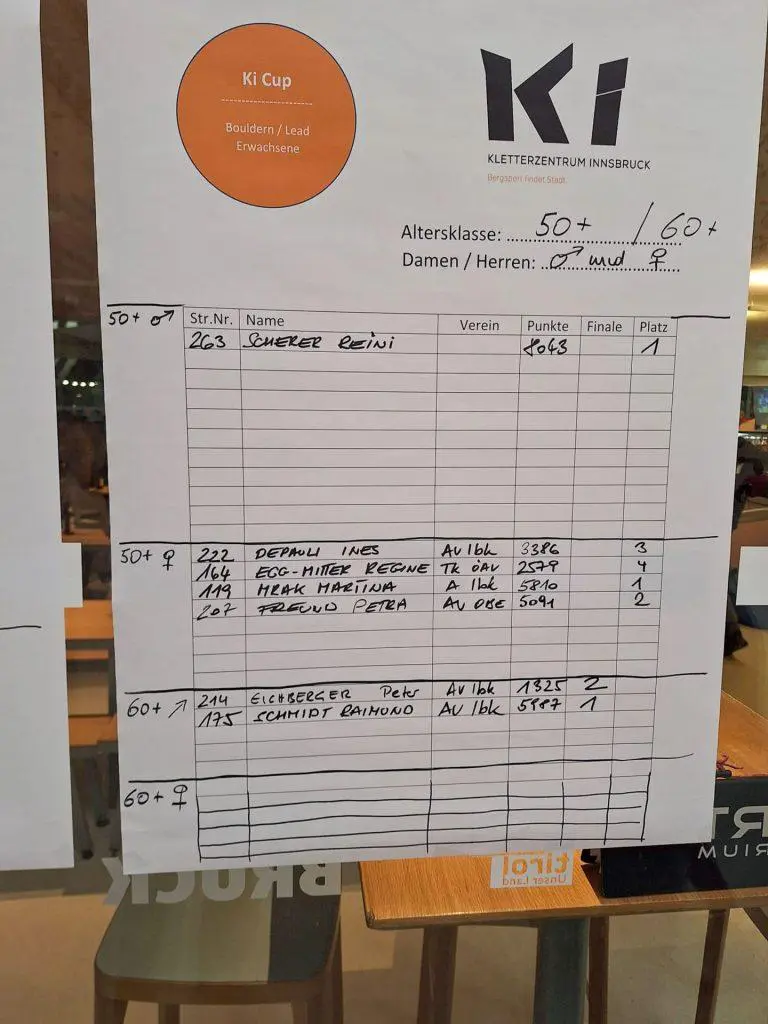 Ki Cup
Bouldern / Lead
Erwachsene
Ki
KLETTERZENTRUM INNSBRUCK
Bergsport findet Stadt.
Altersklasse: 50+ / 60+
Damen / Herren: ♂ und ♀
50+ ♂ Str.Nr. Name Verein Punkte Finale Platz
263 SCHERER REINI 8043 1
50+ ♀ 222 DEPAULI INES AV Ibk 3386 3
164 EGG-HITTER REGINE TK ÖAV 2579 4
119 MRAK MARTINA A Ibk 5810 1
207 FREUND PETRA AV OBE 5091 2
60+ ↗ 214 EICHBERGER Peter AV Ibk 1325 2
175 SCHMIDT RAIMUND AV Ibk 5987 1
60+ ♀
BRUCK
tirol
Unser Land
RT
RIUM